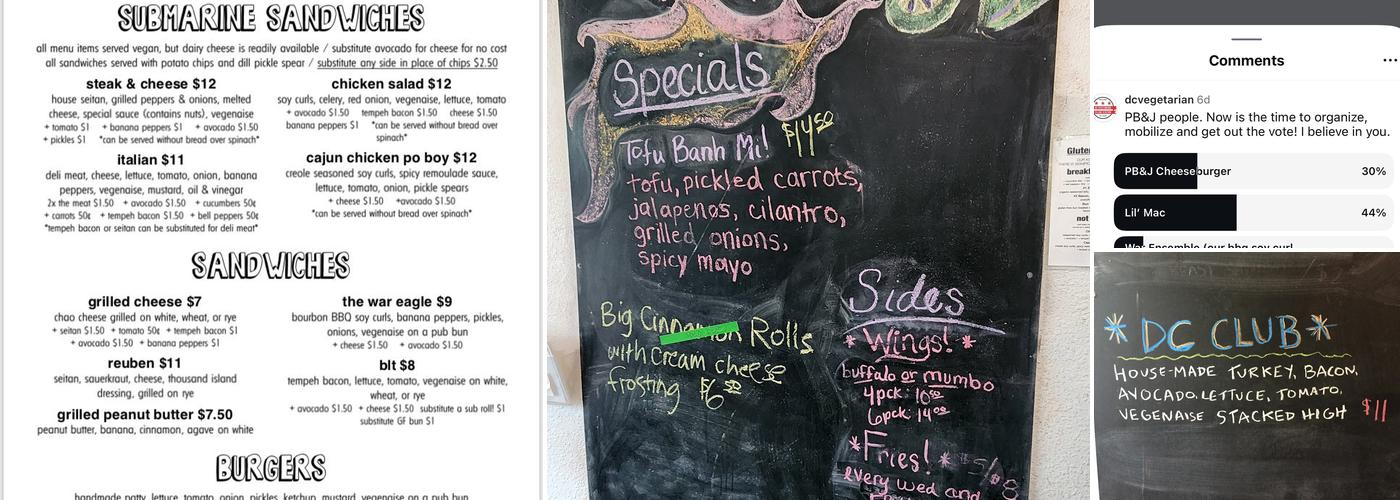 SUBMARINE SANDWICHES
all menu items served vegan, but dairy cheese is readily available / substitute avocado for cheese for no cost
all sandwiches served with potato chips and dill pickle spear / substitute any side in place of chips $2.50
steak & cheese $12
house seitan, grilled peppers & onions, melted
cheese, special sauce (contains nuts), vegenaise
+ tomato $1 + banana peppers $1 + avocado $1.50
+ pickles $1 *can be served without bread over spinach*
italian $11
deli meat, cheese, lettuce, tomato, onion, banana
peppers, vegenaise, mustard, oil & vinegar
2x the meat $1.50 + avocado $1.50 + cucumbers 50¢
+ carrots 50¢ + tempeh bacon $1.50 + bell peppers 50¢
*tempeh bacon or seitan can be substituted for deli meat*
chicken salad $12
soy curls, celery, red onion, vegenaise, lettuce, tomato
+ avocado $1.50 tempeh bacon $1.50 cheese $1.50
banana peppers $1 *can be served without bread over
spinach*
cajun chicken po boy $12
creole seasoned soy curls, spicy remoulade sauce,
lettuce, tomato, onion, pickle spears
+ cheese $1.50 +avocado $1.50
*can be served without bread over spinach*
SANDWICHES
grilled cheese $7
chao cheese grilled on white, wheat, or rye
+ seitan $1.50 + tomato 50¢ + tempeh bacon $1
+ avocado $1.50 + banana peppers $1
reuben $11
seitan, sauerkraut, cheese, thousand island
dressing, grilled on rye
grilled peanut butter $7.50
peanut butter, banana, cinnamon, agave on white
the war eagle $9
bourbon BBQ soy curls, banana peppers, pickles,
onions, vegenaise on a pub bun
+ cheese $1.50 + avocado $1.50
blt $8
tempeh bacon, lettuce, tomato, vegenaise on white,
wheat, or rye
+ avocado $1.50 + cheese $1.50 substitute a sub roll! $1
substitute GF bun $1
BURGERS
handmade patty, lettuce, tomato, onion, pickles, ketchup, mustard, vegenaise on a pub bun
Specials
Tofu Banh Mi! $14.50
tofu, pickled carrots,
jalapenos, cilantro,
grilled onions,
spicy mayo
Big Cinnamon Rolls
with cream cheese
frosting $6.50
Sides
*Wings!*
buffalo or mumbo
4pck: 10.50
6pck: 14.00
*Fries!*
every wed and
Comments
dcvegetarian 6d
PB&J people. Now is the time to organize,
mobilize and get out the vote! I believe in you.
PB&J Cheeseburger 30%
Lil' Mac 44%
War Ensemble (our bbq soy curl
* DC CLUB *
HOUSE-MADE TURKEY, BACON,
AVOCADO, LETTUCE, TOMATO,
VEGENAISE STACKED HIGH $11